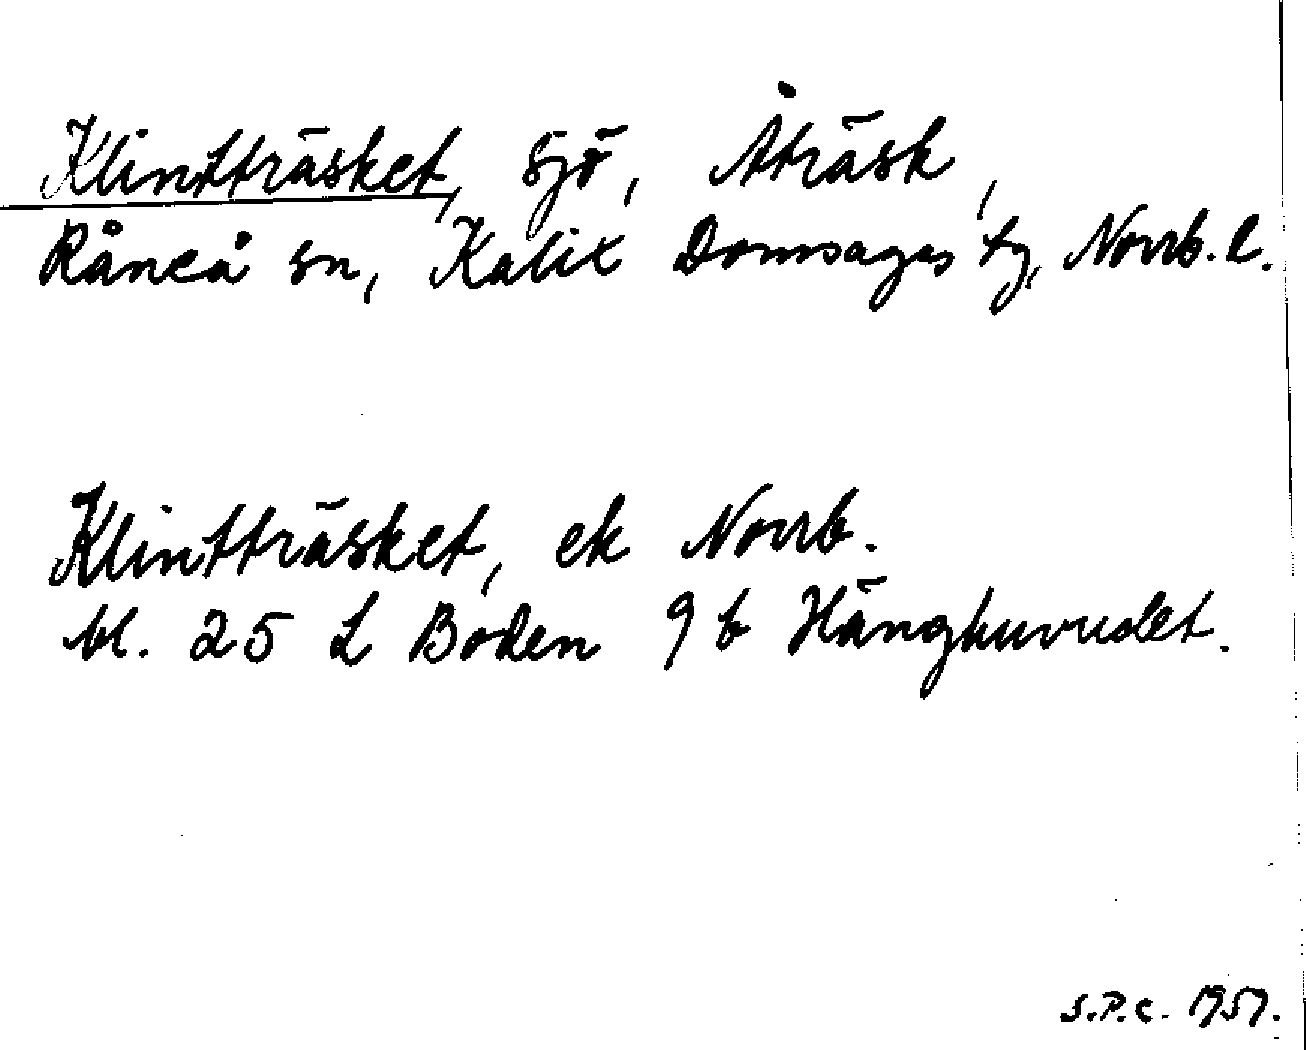 Klintträsket, sjö, Åträsk,
Råneå sn, Kalix Domsagas tg, Norrb. l.
Klintträsket, ek Norrb.
bl. 25 L Boden 9 b Hänghuvudet.
S.P.C. 1957.